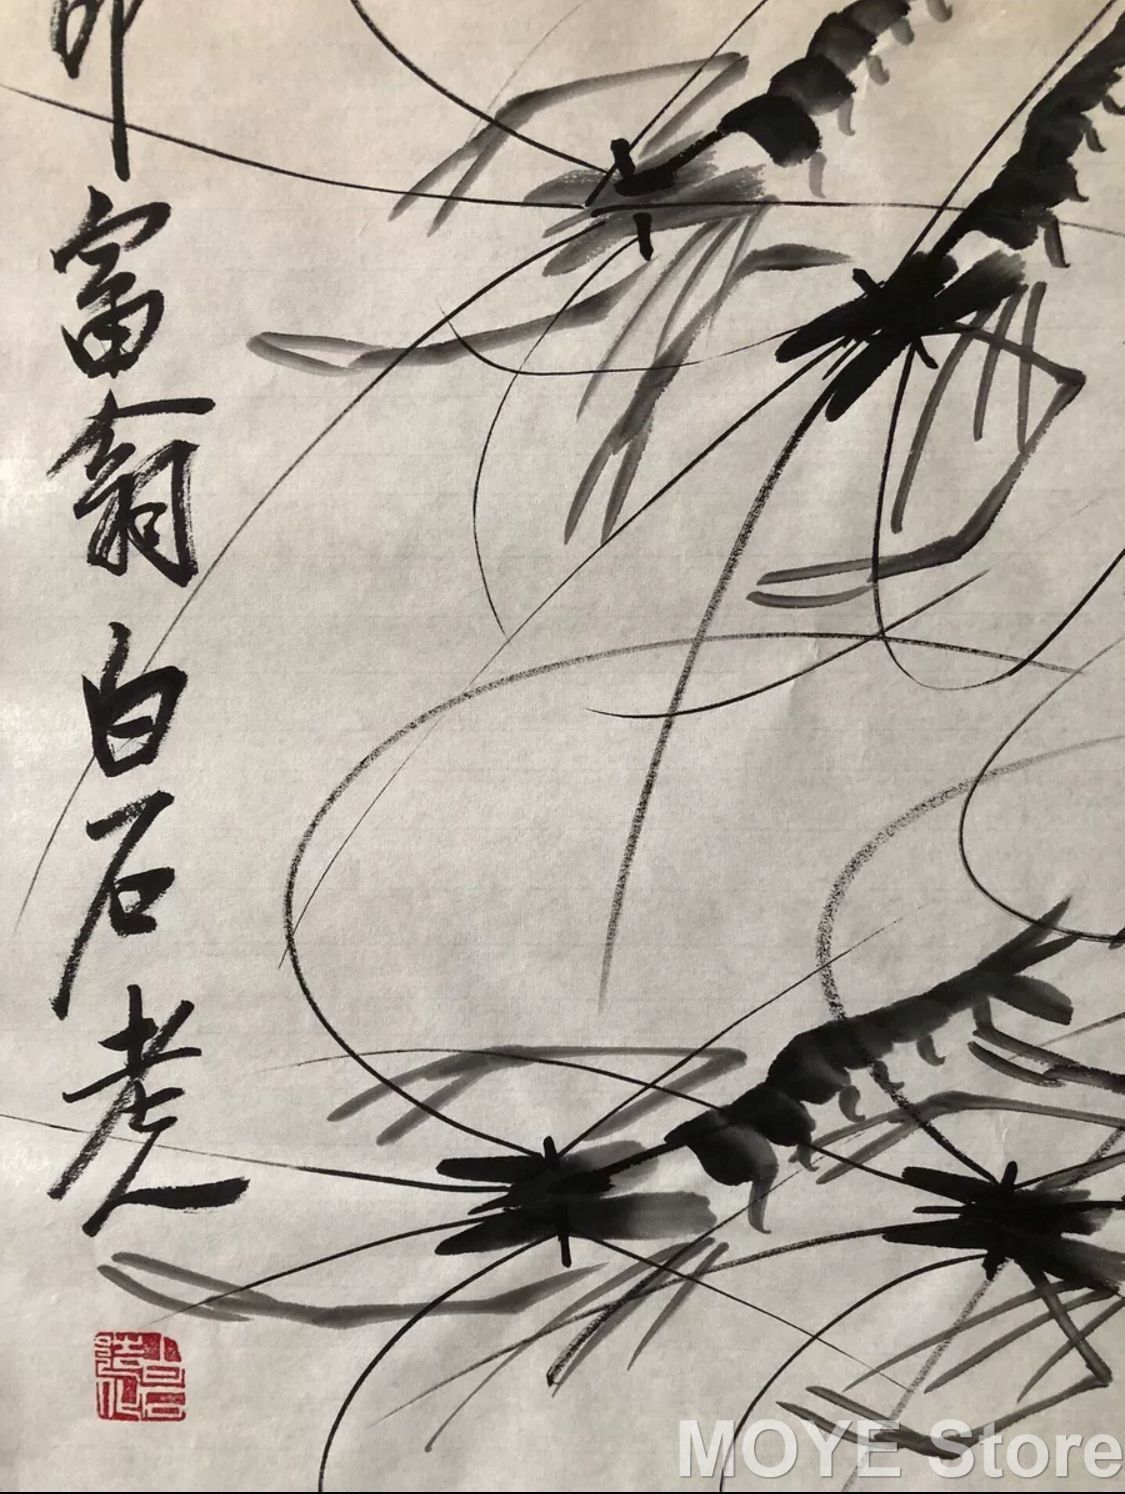 富翁白石老人
MOYE Store